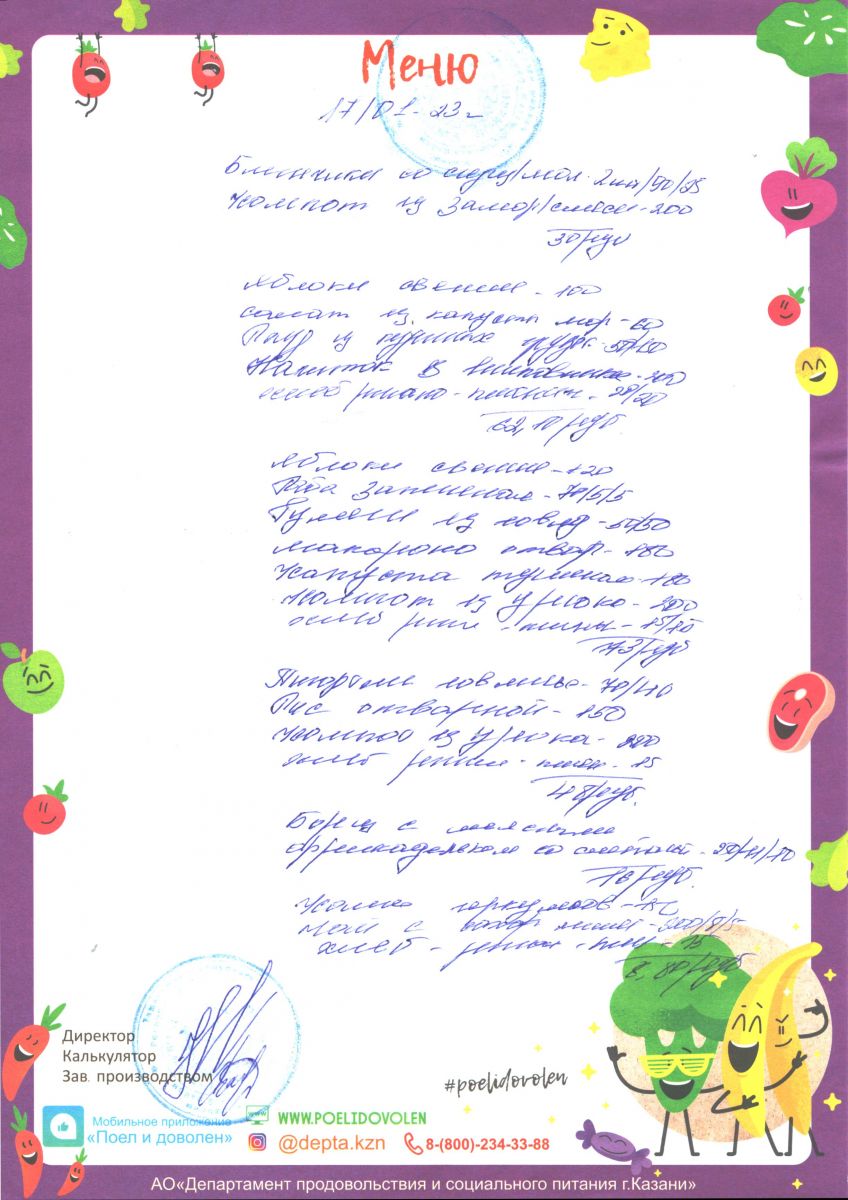 Меню
17/01-23г
Блинчики со сгущ/мол. 2шт/50/25
Компот из замор/смеси - 200
30 руб
Яблоки свежие - 100
салат из капусты мор - 60
из куриных
Напиток
хлеб ржано-пшенич. 20/20
62,10 руб.
Яблоки свежие - 120
Рыба запеченая - 70/5/5
Гуляш из говяд - 50/50
макароны отвар - 180
Капуста тушеная - 180
Компот из урюка - 200
хлеб
73 руб
говяжьи - 70/40
Рис отварной - 150
Компот из урюка - 200
хлеб ржано - пшен - 15
48 руб.
Борщ с мясными
фрикадельками со сметаной
руб.
Чай с
хлеб - ржан - пшен - 15
8,80 руб
Директор
Калькулятор
Зав. производством
#poelidovolen
Мобильное приложение
«Поел и доволен»
WWW.POELIDOVOLEN
@depta.kzn 8-(800)-234-33-88
АО«Департамент продовольствия и социального питания г.Казани»